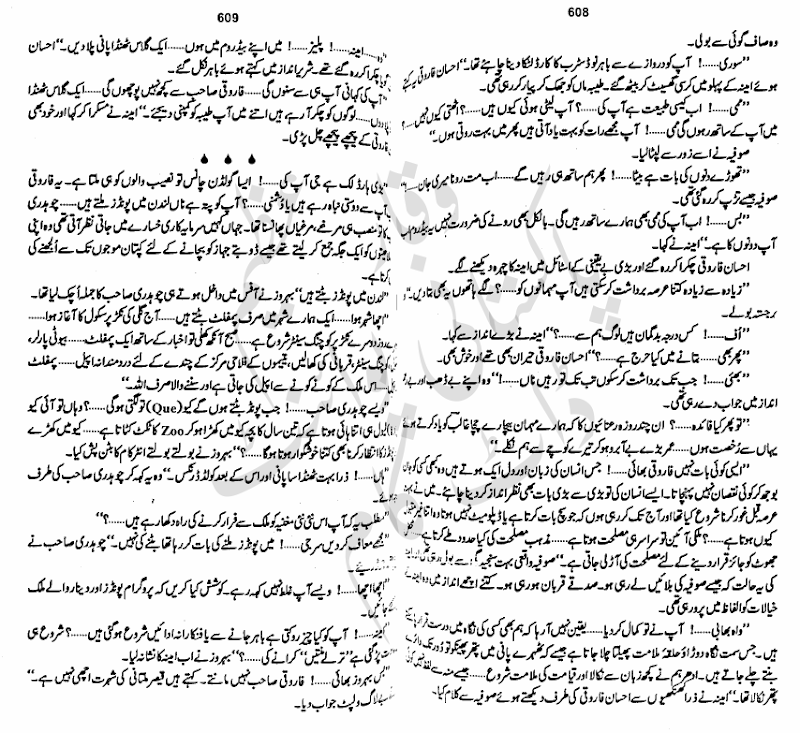 608
وہ صاف گوئی سے بولی۔
”سوری......! آپ کو دروازے سے باہر نو ڈسٹرب کا کارڈ لٹکا دینا چاہئے تھا۔“ احسان فاروقی یہ کہتے
ہوئے امینہ کے پہلو میں کرسی گھسیٹ کر بیٹھ گئے۔ طیبہ ماں کو جھک کر پیار کر رہی تھی۔
”ممی......! اب کیسی طبیعت ہے آپ کی......؟ آپ لیٹی ہوئی کیوں ہیں......؟ اٹھتی کیوں نہیں......؟
میں آپ کے ساتھ رہوں گی ممی......! آپ مجھے رات کو بہت یاد آتی ہیں پھر میں بہت روتی ہوں۔“
صوفیہ نے اسے زور سے لپٹا لیا۔
”تھوڑے دنوں کی بات ہے بیٹا......! پھر ہم ساتھ ہی رہیں گے......اب مت رونا میری جان......!“
صوفیہ جیسے تڑپ کر رہ گئی تھی۔
”بس......! اب آپ کی ممی بھی ہمارے ساتھ رہیں گی۔ بالکل بھی رونے کی ضرورت نہیں یہ بیڈ روم اب
آپ دونوں کا ہے۔“ امینہ نے کہا۔
احسان فاروقی چکرا کر رہ گئے اور بڑی بے یقینی کے اسٹائل میں امینہ کا چہرہ دیکھنے لگے۔
”زیادہ سے زیادہ کتنا عرصہ برداشت کر سکتی ہیں آپ مہمانوں کو......؟ لگے ہاتھوں یہ بھی بتا دیں۔“
برجستہ بولے۔
”اُف......! کس درجہ بدگمان ہیں لوگ ہم سے......؟“ امینہ نے بڑے انداز سے کہا۔
”پھر بھی......بتانے میں کیا حرج ہے......؟“ احسان فاروقی حیران بھی تھے اور خوش بھی۔
”بھئی......! جب تک برداشت کر سکوں تب تک تو رہیں ناں......!“ وہ اپنے بے ڈھب اور بے
انداز میں جواب دے رہی تھی۔
”تو پھر کیا فائدہ......؟ ان چند روزہ رعنائیوں کا کہ ہمارے مہمان بیچارے چچا غالب کو یاد کرتے ہوئے
یہاں سے رُخصت ہوں......عمر بڑے بے آبرو ہو کر تیرے کوچے سے ہم نکلے۔“
”ایسی کوئی بات نہیں فاروقی بھائی......! جس انسان کی زبان اور دل ایک ہوتے ہیں وہ کبھی کسی کو جان
بوجھ کر کوئی نقصان نہیں پہنچاتا۔ ایسے انسان کی تو بڑی سے بڑی بات بھی نظر انداز کر دینا چاہئے۔ میں نے بہت
عرصہ قبل غور کرنا شروع کیا تھا اور آج تک کر رہی ہوں کہ جو سچ بات کرتا ہے یا ڈپلومیٹ نہیں ہوتا وہ اتنا غیر مقبول
کیوں ہوتا ہے......؟ ملکی آئین تو سراسر ہی مصلحت ہوتا ہے......مذہب مصلحت کی کیا حدود طے کرتا ہے......؟
جھوٹ کو جائز قرار دینے کے لئے مصلحت کی آڑ لی جاتی ہے۔“ صوفیہ واقعی بہت سنجیدگی سے بول رہی تھی اور امینہ
کی یہ حالت کہ جیسے صوفیہ کی بلائیں لے رہی ہو۔ صدقے قربان ہو رہی ہو۔ کتنے اچھے انداز میں وہ اپنے
خیالات کو الفاظ میں پرو رہی تھی۔
”واہ بھابی......! آپ نے تو کمال کر دیا......یقین نہیں آ رہا کہ ہم بھی کسی کی نگاہ میں درست قرار پا سکتے
ہیں۔ جس سمت نگاہ دوڑاؤ حلقۂ ملامت پھیلتا چلا جاتا ہے جیسے کہ ٹھہرے پانی میں پتھر پھینکو تو دُور تک دائرے
بنتے چلے جاتے ہیں۔ ادھر ہم نے کچھ زبان سے نکالا اور قیامت کی ملامت شروع......جیسے منہ سے لفظ نہیں
پتھر نکالا تھا۔“ امینہ نے ذرا کنکھیوں سے احسان فاروقی کی طرف دیکھتے ہوئے صوفیہ سے کلام کیا۔
609
امینہ......! پلیز......! میں اپنے بیڈ روم میں ہوں......ایک گلاس ٹھنڈا پانی پلا دیں۔“ احسان
چکرا کر رہ گئے تھے۔ شریر انداز میں کہتے ہوئے باہر نکل گئے۔
”آپ کی کہانی آپ ہی سے سنوں گی......فاروقی صاحب سے کچھ نہیں پوچھوں گی......ایک گلاس ٹھنڈا
......لوگوں کو چکر آ رہے ہیں اتنے میں آپ طیبہ کو کمپنی دیجئے۔“ امینہ نے مسکرا کر کہا اور خود بھی
فاروقی کے پیچھے پیچھے چل پڑی۔
”ویری ہارڈ لک ہے جی آپ کی......! ایسا گولڈن چانس تو نصیب والوں کو ہی ملتا ہے۔ یہ فاروقی
آپ سے دوستی نباہ رہے ہیں یا دُشمنی......؟ آپ کو پتہ ہے ناں لندن میں پونڈز ملتے ہیں......چوہدری
کا تو منصب ہی تھا مرغے، مرغیاں پھانسنا تھا۔ جہاں کہیں سرمایہ کاری خسارے میں جاتی نظر آتی تھی وہ اپنی
کو ایک جگہ جمع کر لیتے تھے جیسے ڈوبتے جہاز کو بچانے کے لئے کپتان موجوں تک سے اُلجھنے کی
کرتا ہے۔
”لندن میں پونڈز بٹتے ہیں“ بہروز نے آفس میں داخل ہوتے ہی چوہدری صاحب کا جملہ اُچک لیا تھا۔
”اچھا شہر ہوا......ایک ہمارے شہر میں صرف پمفلٹ بٹتے ہیں......آج گلی کی نکڑ پر سکول کا آغاز ہوا......
دوسرے نکڑ پر کوچنگ سینٹر شروع ہے......صبح آنکھ کھلی تو اخبار کے ساتھ ایک پمفلٹ......بیوٹی پارلر،
کوچنگ سینٹر، قربانی کی کھالیں، یتیموں کے فلاحی مرکز کے چندے کے لئے دردمندانہ اپیل......پمفلٹ
......اس ملک کے کونے کونے سے اپیل کی جاتی ہے اور سننے والا صرف اللہ۔“
”ویسے چوہدری صاحب......! جب پونڈز بٹتے ہوں گے کیو (Que) تو لگتی ہوگی......؟ وہاں تو آئی کیو
لیول ہی اتنا ہائی ہوتا ہے کہ تین سال کا بچہ کیو میں کھڑا ہو کر Zoo کا ٹکٹ کٹاتا ہے......کیو میں کھڑے
پونڈز کا انتظار کرنا بھی کتنا خوشگوار ہوتا ہوگا......؟“ بہروز نے بولتے بولتے انٹرکام کا بٹن پش کیا۔
”ہاں......! ذرا بہت ٹھنڈا سا پانی اور اس کے بعد کولڈ ڈرنکس۔“ وہ یہ کہہ کر چوہدری صاحب کی طرف
”مطلب یہ کہ آپ اس نئی نئی مغنیہ کو ملک سے فرار کرنے کی راہ دکھا رہے ہیں......؟“
”مجھے معاف کر دیں سر جی......! میں پونڈز ملنے کی بات کر رہا تھا بٹنے کی نہیں۔“ چوہدری صاحب نے
”اچھا اچھا......! ویسے آپ غلط نہیں کہہ رہے۔ کوشش کیا کریں کہ پروگرام پونڈز اور دینار والے ملک
جائیں۔
امینہ......! آپ کو کیا چیز روکتی ہے باہر جانے سے یا فنکارانہ ادائیں شروع ہو گئی ہیں......؟ شروع ہی
پڑ گئی ہے ”ترلے منتیں“ کرانے کی......؟“ بہروز نے اب امینہ کا نشانہ لیا۔
”بس بہروز بھائی......! فاروقی صاحب نہیں مانتے۔ کہتے ہیں قیصر ملتانی کی شہرت اچھی نہیں ہے۔“
بے لاگ و لپٹ جواب دیا۔